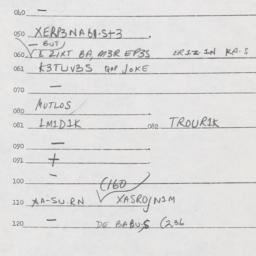 040 —
050 XERP3NA61.S+3
— BUT/
060 & ZIXT BA, M3R EP3S ER1Z1N KA.S
061 K3TUVBS GOP JOKE
070 —
080 AUTLOS
081 1M1D1K 082 TROUR1K
090 —
091 +
100 — (160
110 XA-SU.RN XASRO/N1M
120 — DE BABU.S (236